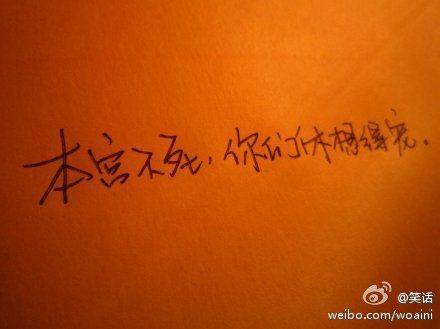 本宫不死,你们休相得宠。
@笑话
weibo.com/woaini